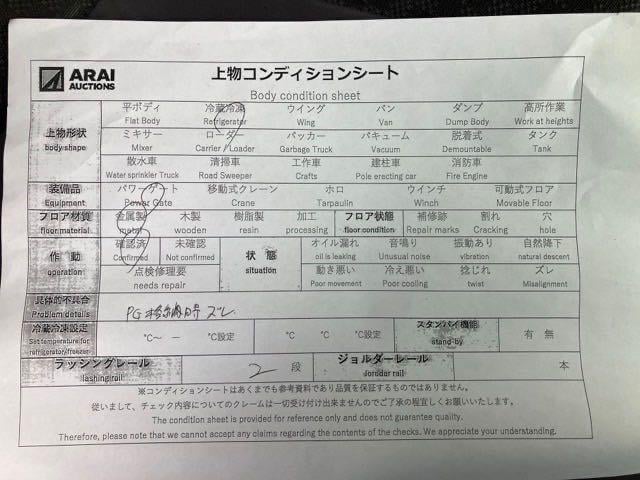 ARAI
AUCTIONS
上物コンディションシート
Body condition sheet
上物形状
body shape
平ボディ 冷蔵冷凍 ウイング バン ダンプ 高所作業
Flat Body Refrigerator Wing Van Dump Body Work at heights
ミキサー ローダー パッカー バキューム 脱着式 タンク
Mixer Carrier / Loader Garbage Truck Vacuum Demountable Tank
散水車 清掃車 工作車 建柱車 消防車
Water sprinkler Truck Road Sweeper Crafts Pole erecting car Fire Engine
装備品 パワーゲート 移動式クレーン ホロ ウインチ 可動式フロア
Equipment Power Gate Crane Tarpaulin Winch Movable Floor
フロア材質 金属製 木製 樹脂製 加工 フロア状態 補修跡 割れ 穴
floor material metal wooden resin processing floor condition Repair marks Cracking hole
作動
operation
確認済 未確認
Confirmed Not confirmed
点検修理要
needs repair
状態
situation
オイル漏れ 音鳴り 振動あり 自然降下
oil is leaking Unusual noise vibration natural descent
動き悪い 冷え悪い 捻じれ ズレ
Poor movement Poor cooling twist Misalignment
具体的不具合
Problem details
PG 格納時 ズレ
冷蔵冷凍設定 ℃～ － ℃設定 ℃ ℃ ℃設定 スタンバイ機能 有 無
Set temperature for
refrigerator/freezer
stand-by
ラッシングレール 2 段 ジョルダーレール 本
lashing rail Jorodar rail
※コンディションシートはあくまでも参考資料であり品質を保証するものではありません。
従いまして、チェック内容についてのクレームは一切受け付け出来ませんのでご了承の程宜しくお願いいたします。
The condition sheet is provided for reference only and does not guarantee quality.
Therefore, please note that we cannot accept any claims regarding the contents of the checks. We appreciate your understanding.